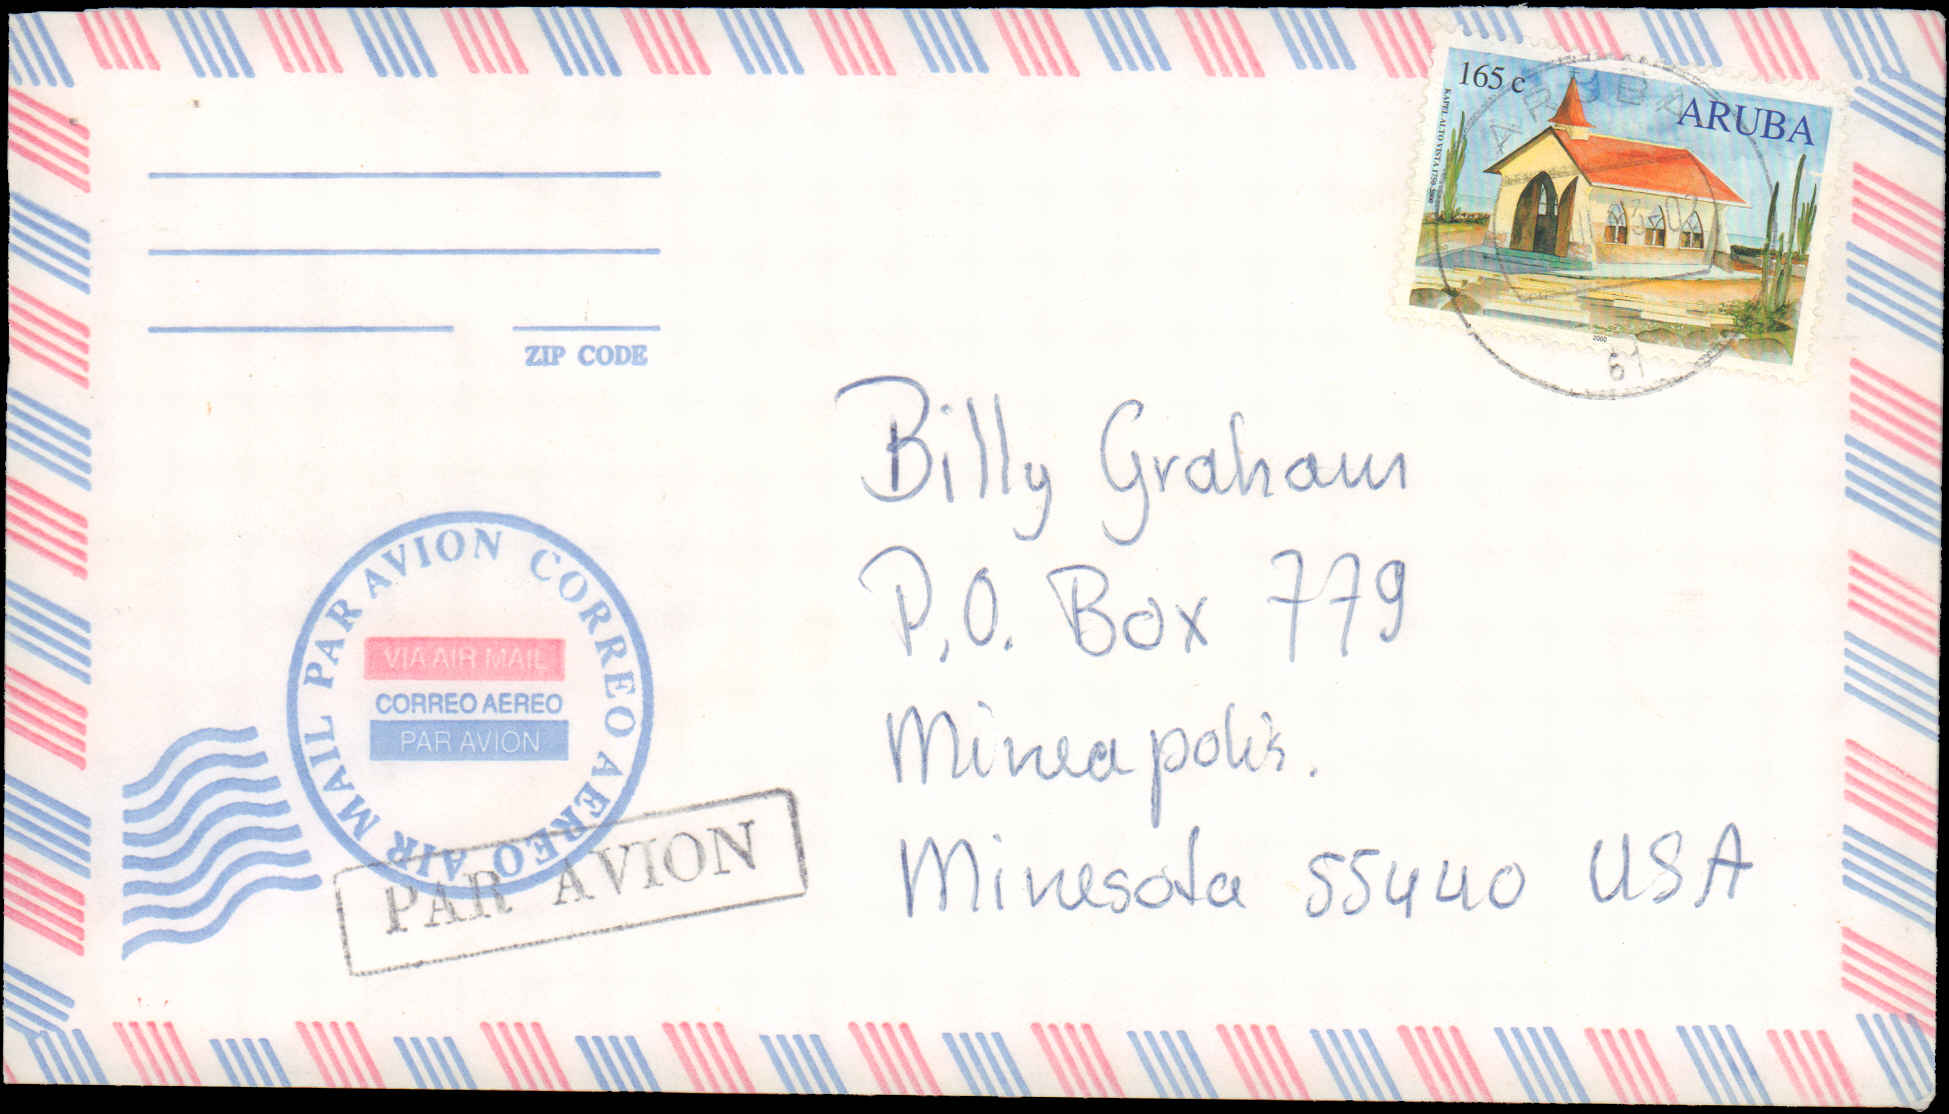 165 c
ARUBA
KAPEL ALTO VISTA 1750-2000
2000
ARUBA
61
ZIP CODE
Billy Graham
P.O. Box 779
Mineapolis.
Minesota 55440 USA
AIR MAIL PAR AVION CORREO AEREO
VIA AIR MAIL
CORREO AEREO
PAR AVION
PAR AVION